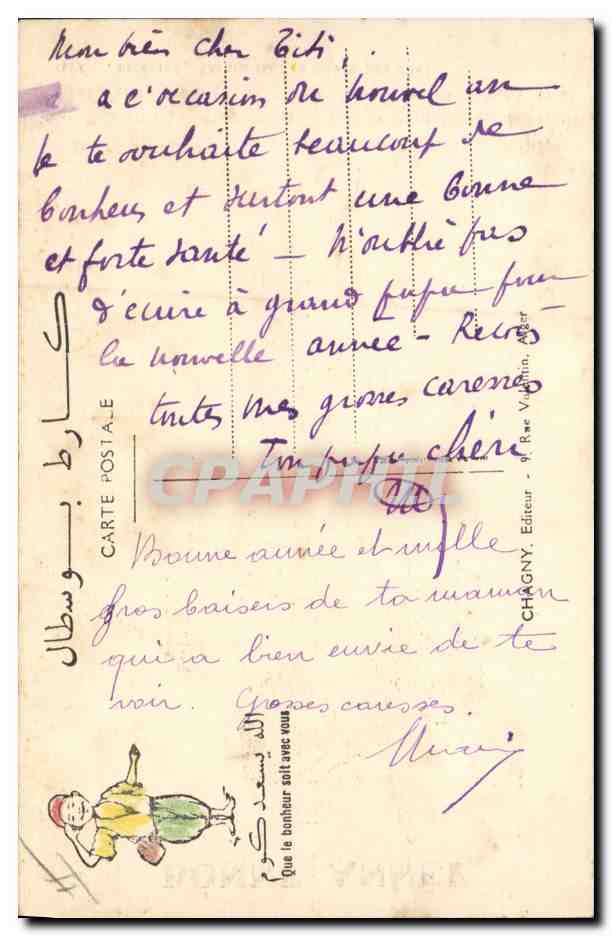 Mon bien cher Titi,
a l'occasion du nouvel an
je te souhaite beaucoup de
bonheur et surtout une bonne
et forte santé — N'oublie pas
d'écrire à grand papa pour
la nouvelle année — Reçois
toutes mes grosses caresses
Ton papa chéri
Bonne année et mille
gros baisers de ta maman
qui a bien envie de te
voir. Grosses caresses.
كارط بوسطال
CARTE POSTALE
CHAGNY, Editeur - 9, Rue Valentin, Alger
الله يسعدكوم
Que le bonheur soit avec vous
CPAPHIL
BONNE ANNÉE